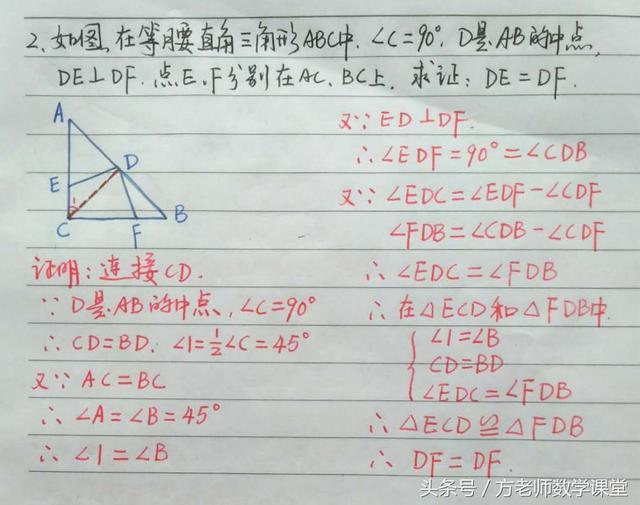 2、如图,在等腰直角三角形ABC中,∠C=90°,D是AB的中点,
DE⊥DF,点E、F分别在AC、BC上,求证:DE=DF.
A
D
E
1
C
F
B
证明:连接CD.
∵D是AB的中点,∠C=90°
∴CD=BD, ∠1=½∠C=45°
又∵AC=BC
∴∠A=∠B=45°
∴∠1=∠B
又∵ED⊥DF.
∴∠EDF=90°=∠CDB
又∵∠EDC=∠EDF-∠CDF
∠FDB=∠CDB-∠CDF
∴∠EDC=∠FDB
∴在△ECD和△FDB中.
∠1=∠B
CD=BD
∠EDC=∠FDB
∴△ECD≌△FDB
∴DF=DF.
头条号/方老师数学课堂